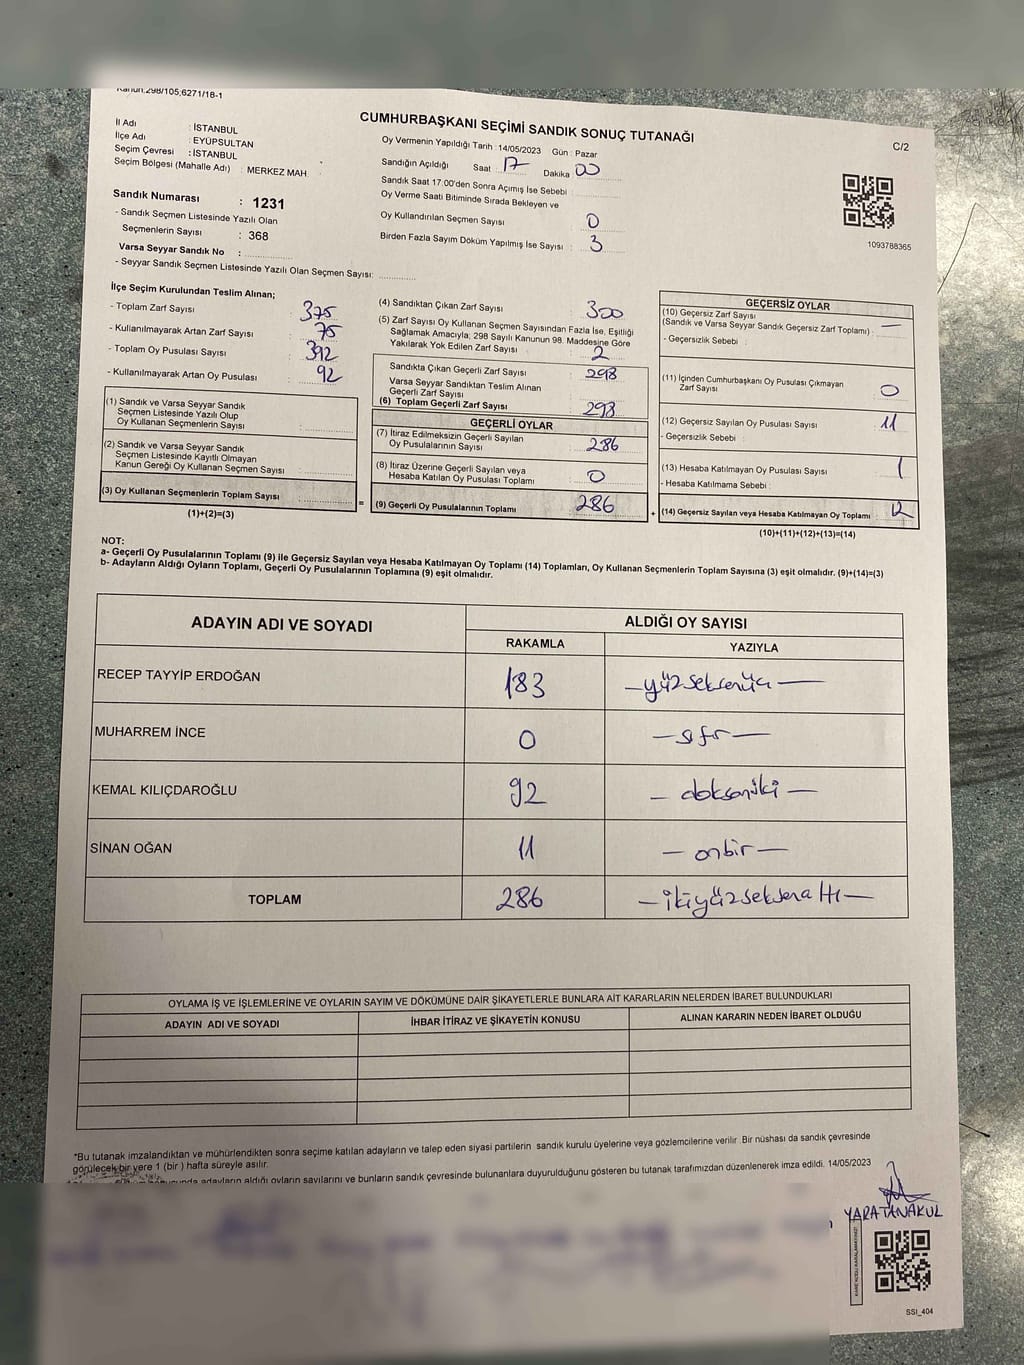 Kanun:298/105;6271/18-1
CUMHURBAŞKANI SEÇİMİ SANDIK SONUÇ TUTANAĞI
C/2
İl Adı : İSTANBUL
İlçe Adı : EYÜPSULTAN
Seçim Çevresi : İSTANBUL
Seçim Bölgesi (Mahalle Adı) : MERKEZ MAH.
Sandık Numarası : 1231
- Sandık Seçmen Listesinde Yazılı Olan
Seçmenlerin Sayısı : 368
Varsa Seyyar Sandık No :
- Seyyar Sandık Seçmen Listesinde Yazılı Olan Seçmen Sayısı:
Oy Vermenin Yapıldığı Tarih : 14/05/2023 Gün : Pazar
Sandığın Açıldığı Saat 17 Dakika 00
Sandık Saat 17:00'den Sonra Açılmış İse Sebebi
Oy Verme Saati Bitiminde Sırada Bekleyen ve
Oy Kullandırılan Seçmen Sayısı : 0
Birden Fazla Sayım Döküm Yapılmış İse Sayısı : 3
1093788365
İlçe Seçim Kurulundan Teslim Alınan;
- Toplam Zarf Sayısı : 375
- Kullanılmayarak Artan Zarf Sayısı : 75
- Toplam Oy Pusulası Sayısı : 392
- Kullanılmayarak Artan Oy Pusulası : 92
(1) Sandık ve Varsa Seyyar Sandık
Seçmen Listesinde Yazılı Olup
Oy Kullanan Seçmenlerin Sayısı :
(2) Sandık ve Varsa Seyyar Sandık
Seçmen Listesinde Kayıtlı Olmayan
Kanun Gereği Oy Kullanan Seçmen Sayısı :
(3) Oy Kullanan Seçmenlerin Toplam Sayısı :
(1)+(2)=(3)
=
(4) Sandıktan Çıkan Zarf Sayısı : 300
(5) Zarf Sayısı Oy Kullanan Seçmen Sayısından Fazla İse, Eşitliği
Sağlamak Amacıyla; 298 Sayılı Kanunun 98. Maddesine Göre
Yakılarak Yok Edilen Zarf Sayısı : 2
Sandıkta Çıkan Geçerli Zarf Sayısı : 298
Varsa Seyyar Sandıktan Teslim Alınan
Geçerli Zarf Sayısı :
(6) Toplam Geçerli Zarf Sayısı : 298
GEÇERLİ OYLAR
(7) İtiraz Edilmeksizin Geçerli Sayılan
Oy Pusulalarının Sayısı : 286
(8) İtiraz Üzerine Geçerli Sayılan veya
Hesaba Katılan Oy Pusulası Toplamı : 0
(9) Geçerli Oy Pusulalarının Toplamı : 286
+
GEÇERSİZ OYLAR
(10) Geçersiz Zarf Sayısı
(Sandık ve Varsa Seyyar Sandık Geçersiz Zarf Toplamı) : —
- Geçersizlik Sebebi
(11) İçinden Cumhurbaşkanı Oy Pusulası Çıkmayan
Zarf Sayısı : 0
(12) Geçersiz Sayılan Oy Pusulası Sayısı : 11
- Geçersizlik Sebebi :
(13) Hesaba Katılmayan Oy Pusulası Sayısı : 1
- Hesaba Katılmama Sebebi :
(14) Geçersiz Sayılan veya Hesaba Katılmayan Oy Toplamı : 12
(10)+(11)+(12)+(13)=(14)
NOT:
a- Geçerli Oy Pusulalarının Toplamı (9) ile Geçersiz Sayılan veya Hesaba Katılmayan Oy Toplamı (14) Toplamları, Oy Kullanan Seçmenlerin Toplam Sayısına (3) eşit olmalıdır. (9)+(14)=(3)
b- Adayların Aldığı Oyların Toplamı, Geçerli Oy Pusulalarının Toplamına (9) eşit olmalıdır.
ADAYIN ADI VE SOYADI ALDIĞI OY SAYISI
RAKAMLA YAZIYLA
RECEP TAYYİP ERDOĞAN 183 —yüzseksenüç—
MUHARREM İNCE 0 —sıfır—
KEMAL KILIÇDAROĞLU 92 —doksaniki—
SİNAN OĞAN 11 —onbir—
TOPLAM 286 —ikiyüzseksenaltı—
OYLAMA İŞ VE İŞLEMLERİNE VE OYLARIN SAYIM VE DÖKÜMÜNE DAİR ŞİKAYETLERLE BUNLARA AİT KARARLARIN NELERDEN İBARET BULUNDUKLARI
ADAYIN ADI VE SOYADI İHBAR İTİRAZ VE ŞİKAYETİN KONUSU ALINAN KARARIN NEDEN İBARET OLDUĞU
*Bu tutanak imzalandıktan ve mühürlendikten sonra seçime katılan adayların ve talep eden siyasi partilerin sandık kurulu üyelerine veya gözlemcilerine verilir. Bir nüshası da sandık çevresinde
görülecek bir yere 1 (bir ) hafta süreyle asılır.
adayların aldığı oyların sayılarını ve bunların sandık çevresinde bulunanlara duyurulduğunu gösteren bu tutanak tarafımızdan düzenlenerek imza edildi. 14/05/2023
YARATANAKUL
SSI_404